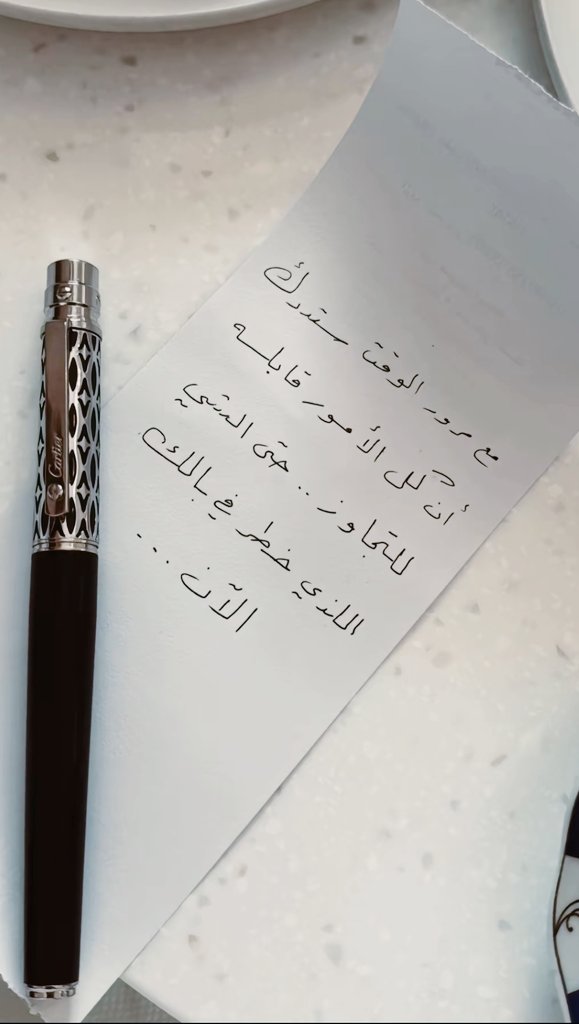 مع مرور الوقت ستدرك
أن كل الأمور قابله
للتجاوز .. حتى الشي
اللذي خطر في بالك
الآن ...
Cartier